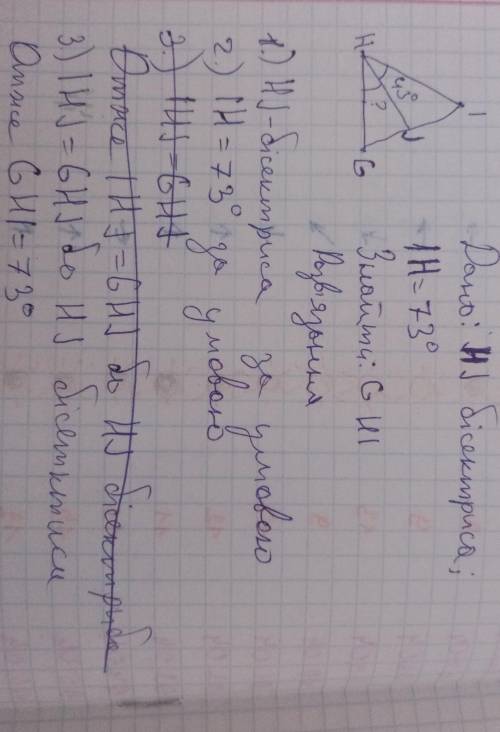 Дано: HJ бісектриса;
IH = 73°
Знайти: GHI
Розвязання
I
H 43° J
?
G
1.) HJ - бісектриса за умовою
2.) IH = 73° за умовою
3.) IHJ = GHJ
Отже IHJ = GHJ бо HJ бісектриса
3.) IHJ = GHJ бо HJ бісетктиси
Отже GHI = 73°